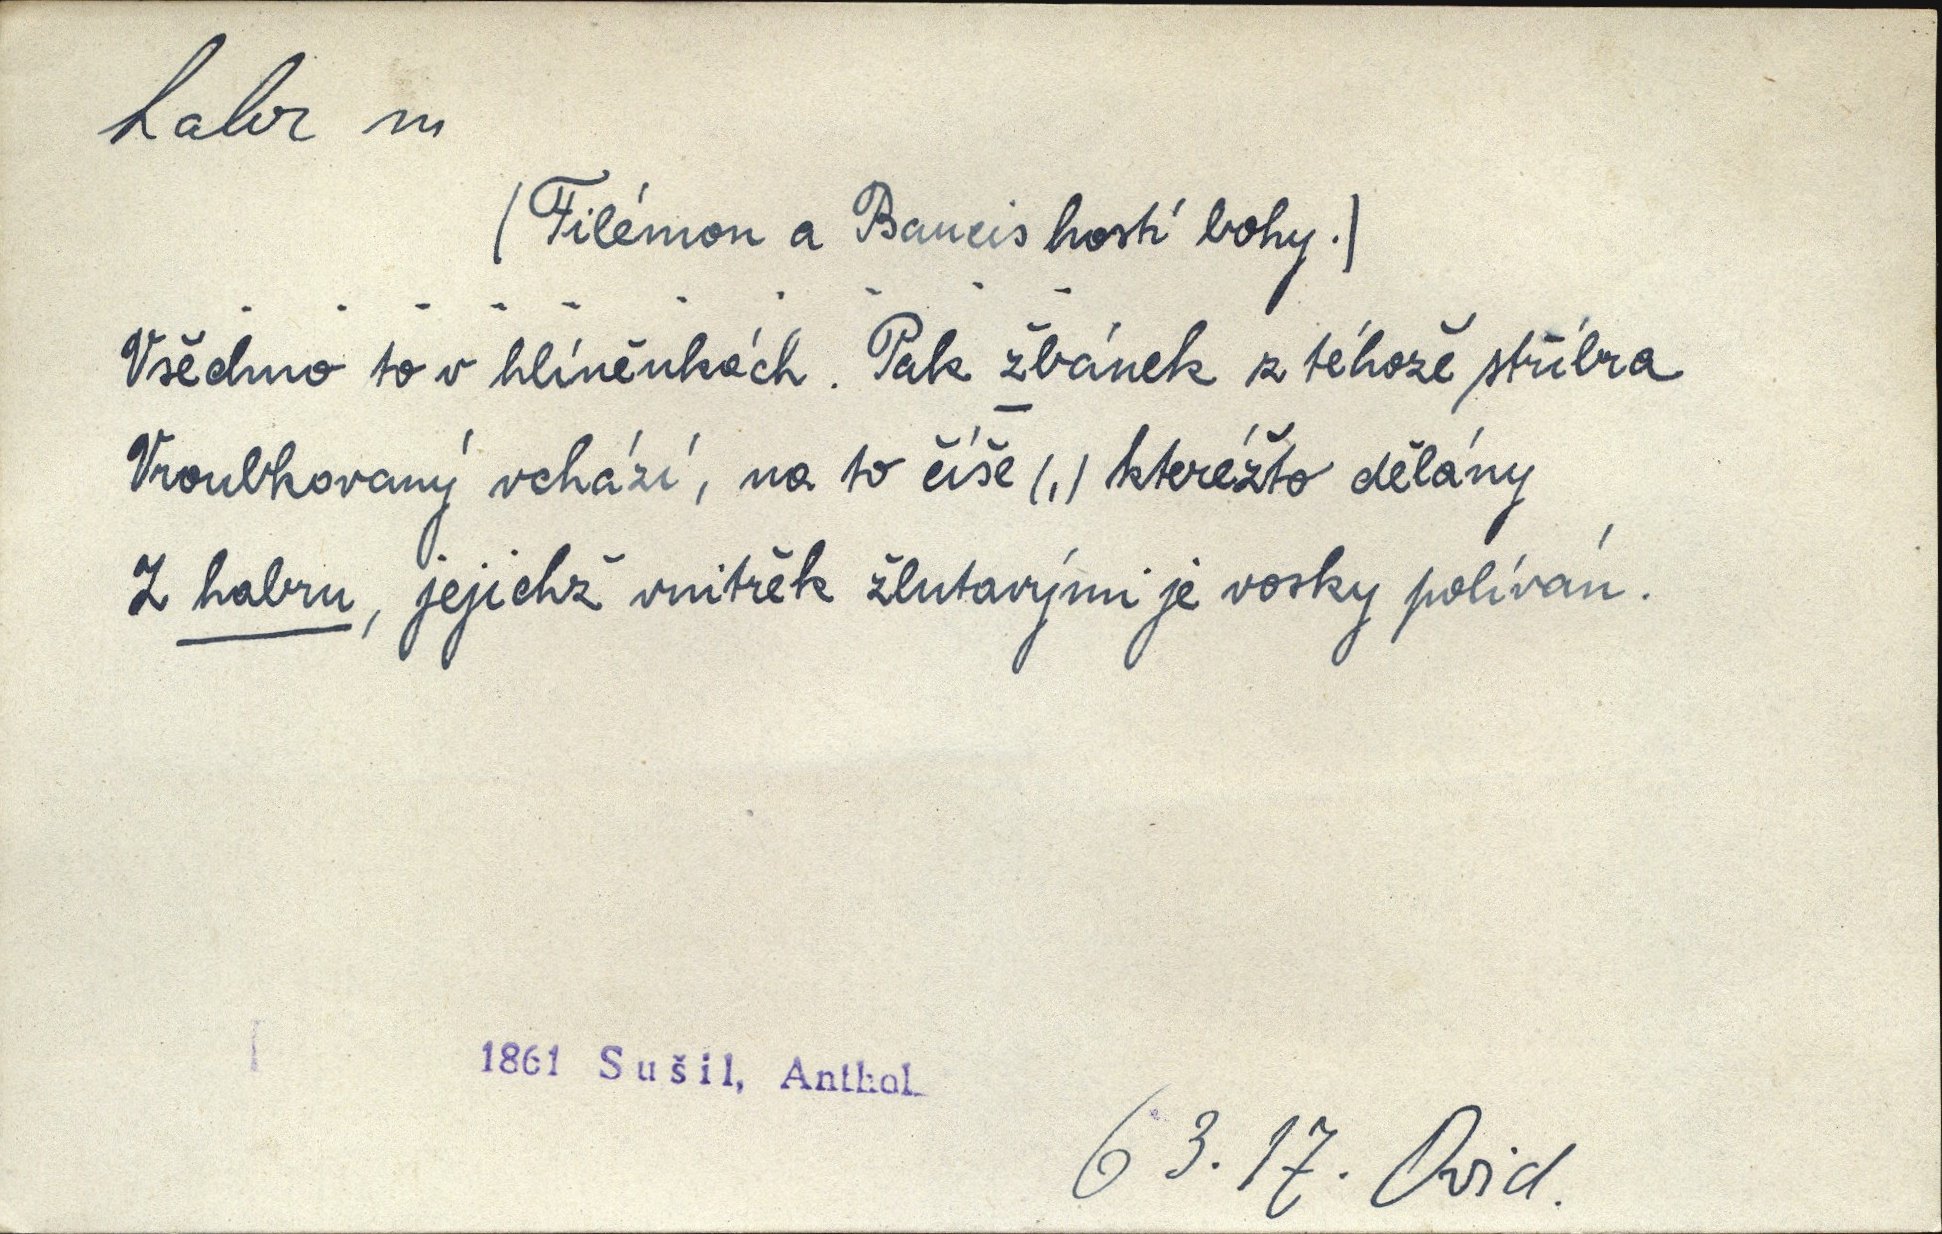 habr m
(Filémon a Baucis hostí bohy.)
. . - - - - . - - -
Všechno to v hlíněnkách. Pak žbánek z téhož stříbra
Vroubkovaný vchází, na to číše (,) kteréžto dělány
Z habru, jejichž vnitřek žlutavými je vosky políván.
1861 Sušil, Anthol.
63. 17. Ovid.